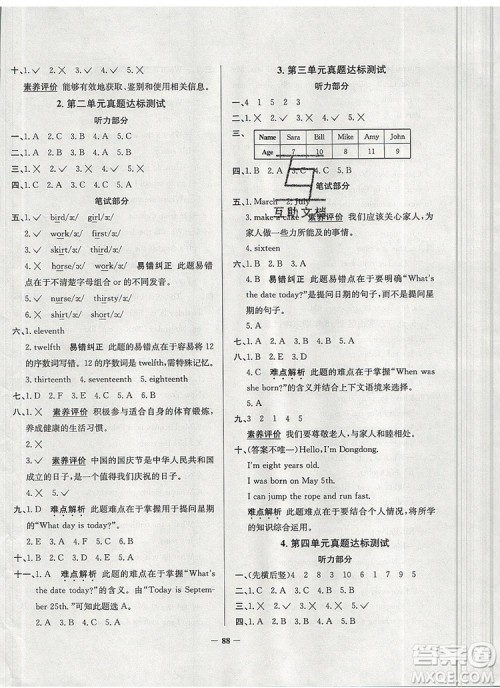 十、1. ✓ 2. ✓ 3. ✓ 4. ✕ 5. ✕
素养评价 能够有效地获取、鉴别和使用相关信息。
2. 第二单元真题达标测试
听力部分
一、1. A 2. C 3. B 4. A 5. C
二、1. C 2. A 3. A 4. B 5. C
三、1. ✓ 2. ✕ 3. ✕ 4. ✓ 5. ✕
四、1. A 2. B 3. C 4. A 5. C
笔试部分
五、1. ✓ bird/ɜː/ girl/ɜː/
2. ✓ skirt/ɜː/ shirt/ɜː/
3. ✓ world/ɜː/ word/ɜː/
4. ✕ horse/ɔː/ nurse/ɜː/ 易错纠正 此题易错
点在于不清楚字母组合 or 的不同发音。
5. ✕ short/ɔː/ shirt/ɜː/
六、1. eleventh
2. twelfth 易错纠正 此题的易错点在于容易将 12
的序数词写错。12 的序数词是 twelfth,需特殊记忆。
3. thirteenth 4. seventeenth 5. eighteenth
七、1. D 2. C 3. B 4. E 5. A
八、1. ✕ 素养评价 积极参与适合自身的体育锻炼,
养成健康的生活习惯。
2. ✕
3. ✓ 素养评价 中国的国庆节是中华人民共和国
成立的日子,是一个值得我们庆祝的日子。
4. ✓ 5. ✕
九、1. D 难点解析 此题难点在于掌握用于提问星期
的“What day is today?”。
2. E 3. C 4. A 5. B
十一、1. A 难点解析 此题的难点在于掌握“What's
the date today?”的含义。由“Today is Septem-
ber 25th.”可知此题选 A。
2. A 3. B 4. B 5. A
3. 第三单元真题达标测试
听力部分
一、4 1 5 2 3
二、1. ✕ 2. ✓ 3. ✓ 4. ✕ 5. ✓
三、
Name Sara Bill Mike Amy John
Age 7 10 8 11 9
四、1. B 2. A 3. C 4. B 5. C
笔试部分
五、1. March 2. July
互助文档
3. make a cake 素养评价 我们应该关心家人,为
家人做一些力所能及的事情。
4. sixteen
六、1. B 2. B 3. A
4. B 易错纠正 此题易错点在于要明确“What's
the date today?”是提问日期的句子。
5. A
七、1. ✕ 2. ✓ 3. ✓ 4. ✕ 5. ✓
八、1. C 2. A 3. B
4. C 难点解析 此题的难点在于掌握“When was
she born?”的含义并结合上下文语境做出选择。
5. A
九、3 2 1 4 5
素养评价 我们要尊敬老人,与家人和睦相处。
十、(答案不唯一)Hello, I'm Dongdong.
I'm eight years old.
I was born on May 5th.
I can jump the rope and run fast.
难点解析 此题的难点在于结合个人情况,将所学
的知识综合运用。
4. 第四单元真题达标测试
听力部分
一、(先横后竖) 4 2 8 3 10 5 6 1 7 9
二、1. ✕ 2. ✓ 3. ✓ 4. ✓ 5. ✕
三、1. C 2. B 3. A 4. C 5. C
四、1. C 2. A 3. B 4. A 5. C
— 88 —
答案圈
MXQE.COM